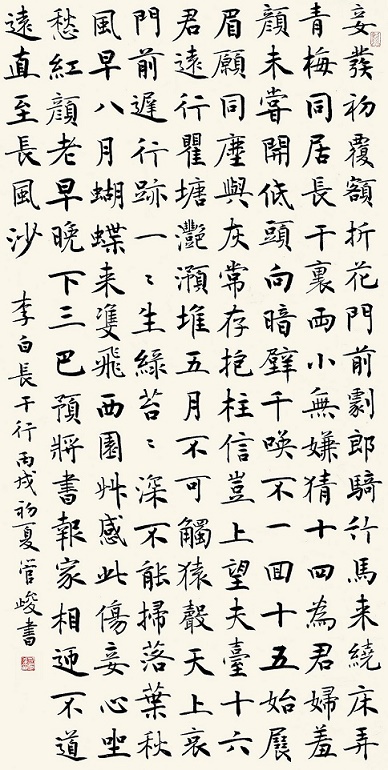 妾發初覆額折花門前劇郎騎竹馬来繞床弄
青梅同居長干裏兩小無嫌猜十四為君婦羞
顏未嘗開低頭向暗壁千喚不一回十五始展
眉願同塵與灰常存抱柱信豈上望夫臺十六
君遠行瞿塘灩澦堆五月不可觸猿聲天上哀
門前遲行跡一〻生綠苔〻深不能掃落葉秋
風早八月蝴蝶来雙飛西園艸感此傷妾心坐
愁紅顏老早晚下三巴預將書報家相迎不道
遠直至長風沙
李白長干行丙戌初夏管峻書